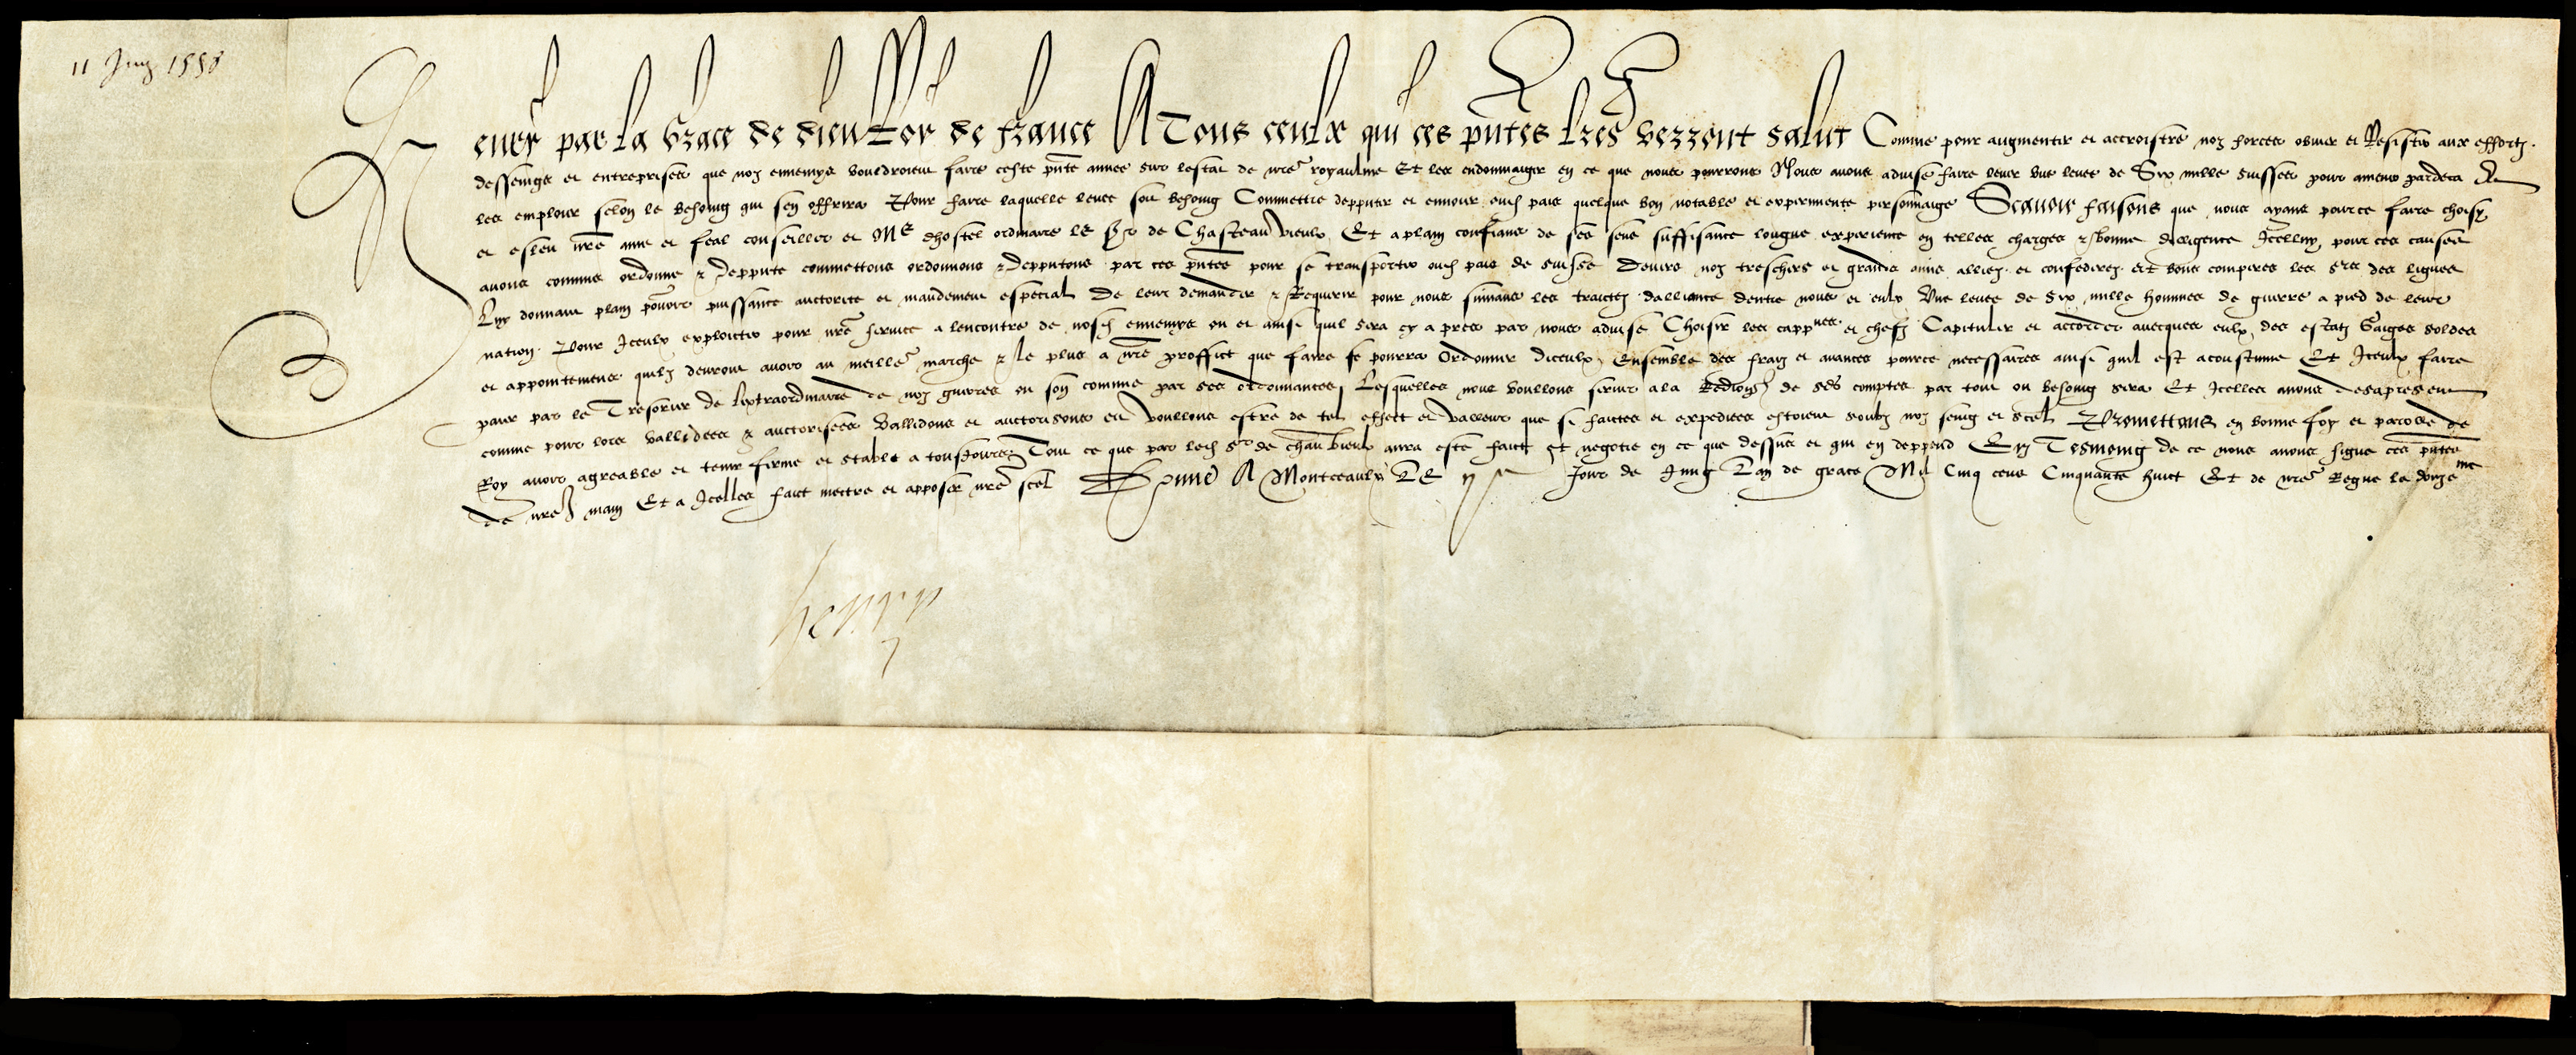 11 Juing 1558
Henry par la grace de dieu Roy de france A Tous ceulx qui ces pntes lres verront salut Comme pour augmenter et accroistre noz forces obvier et Resister aux effortz
desseings et entreprises que noz ennemys vouldroient faire ceste pnte annee sur lestat de nre royaulme Et les endommaiger en ce que nous pourrons Nous avons advise faire lever une levee de Six mille suisses pour amener pardeca Et
les emploier selon le besoing qui sen offrira Pour faire laquelle levee soit besoing Commettre depputer et envoier oud pais quelque bon notable et experimente personnaige Scavoir faisons que nous ayans pource faire choisy
et esleu nre ame et feal conseiller et Me dhostel ordinaire le Sr de Chasteau vieulx Et a plain confians de ses sens suffisance longue experience en telles charges & bonne dilligence Icelluy pour ces causes
avons commis ordonne & deppute commettons ordonnons & depputons par ces pntes pour se transporter oud pais de suisse Devers noz treschers et grands amis alliez et confederez et bons comperes les srs des ligues
Luy donnant plain pouvoir puissance auctorite et mandement especial De leur demander & Requerir pour nous suivans les traictez dalliance dentre nous et eulx Une levee de six mille hommes de guerre a pied de leur
nation Pour Iceulx exploicter pour nre service a lencontre de nosd ennemys ou et ainsi quil sera cy apres par nous advise Choisir les cappnes et chefz Capituler et accorder avecques eulx des estatz Gaiges soldes
et appointemens quilz devront avoir au meillr marche & le plus a nre proffict que faire se pourra Ordonner diceulx Ensemble des fraiz et avances pource necessaires ainsi quil est acoustume Et Iceulx faire
paier par le Tresorier de lextraordinaire de noz guerres ou son commis par ses ordonnances Lesquelles nous voullons servir a la Reddion de sds comptes par tout ou besoing sera Et Icelles avons desapresent
comme pour lors vallidees & auctorisees Vallidons et auctorisons et voullons estre de tel effect et valleur que si faictes et expediees estoient soubz noz seing et scel Promettans en bonne foy et parolle de
Roy avoir agreable et tenir ferme et stable a tousjours Tout ce que par led sr de chau vieulx aura este faict et negotie en ce que dessus et qui en deppend En Tesmoing de ce nous avons signe ces pntes
de nre main Et a Icelles faict mettre et apposer nre scel Donne A Montceaulx LE xje Jour de Juing Lan de grace Mil Cinq cens Cinquante huict Et de nre Regne le douzeme
henry